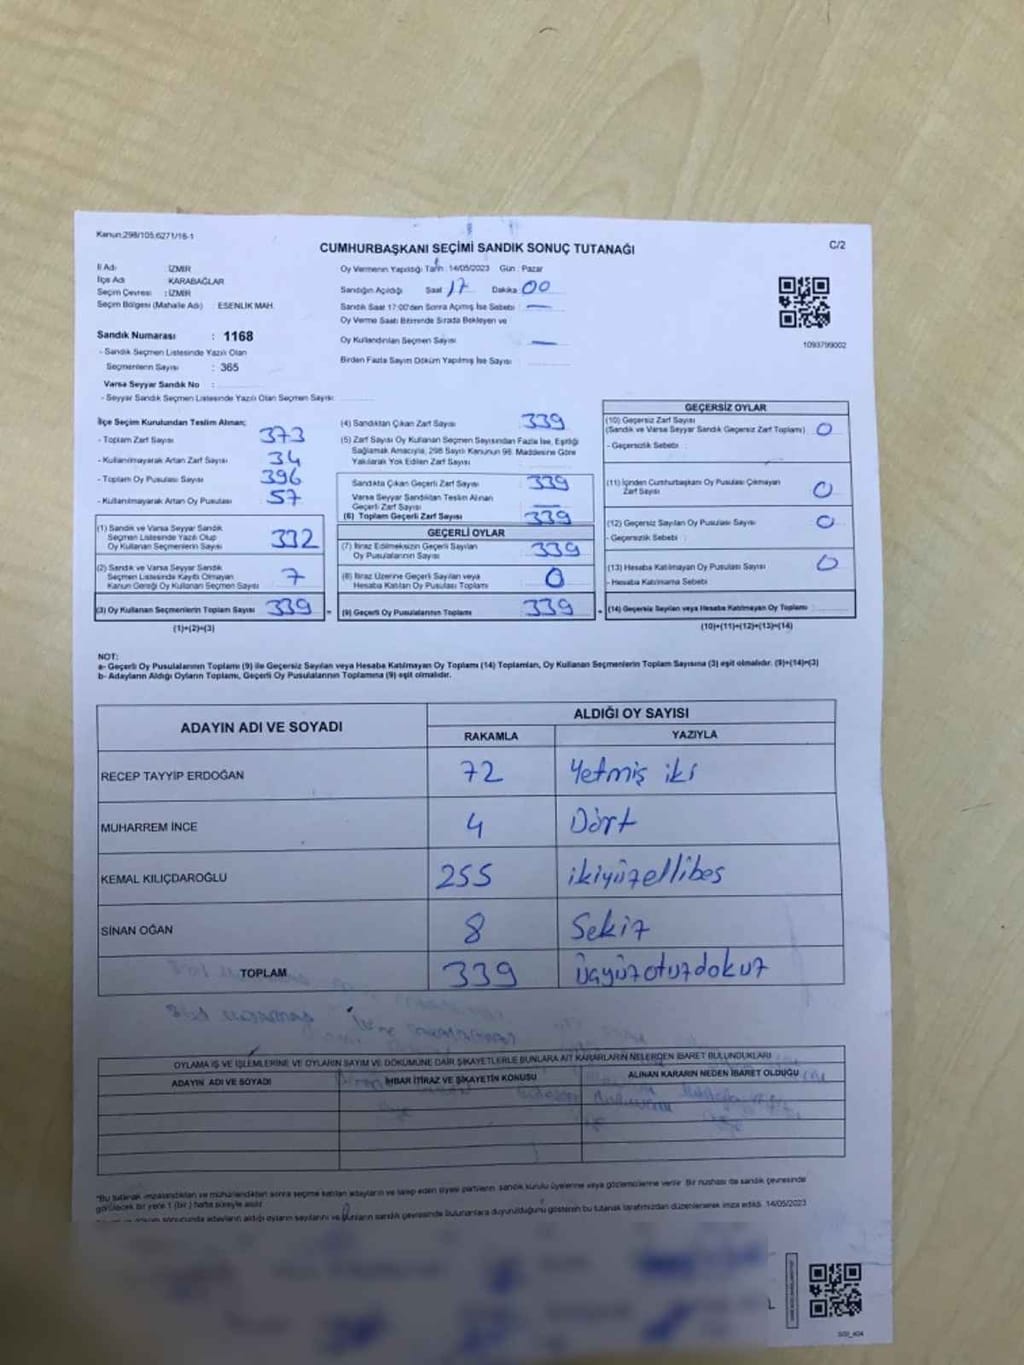 Kanun:298/105,6271/16-1
CUMHURBAŞKANI SEÇİMİ SANDIK SONUÇ TUTANAĞI
C/2
İl Adı : İZMİR
İlçe Adı : KARABAĞLAR
Seçim Çevresi : İZMİR
Seçim Bölgesi (Mahalle Adı) ESENLİK MAH.
Oy Vermenin Yapıldığı Tarih : 14/05/2023 Gün : Pazar
Sandığın Açıldığı Saat 17 Dakika 00
Sandık Saat 17:00'den Sonra Açılmış İse Sebebi : —
Oy Verme Saati Bitiminde Sırada Bekleyen ve
Oy Kullandırılan Seçmen Sayısı —
Birden Fazla Sayım Döküm Yapılmış İse Sayısı
1093799002
Sandık Numarası : 1168
- Sandık Seçmen Listesinde Yazılı Olan
Seçmenlerin Sayısı : 365
Varsa Seyyar Sandık No :
- Seyyar Sandık Seçmen Listesinde Yazılı Olan Seçmen Sayısı
İlçe Seçim Kurulundan Teslim Alınan;
- Toplam Zarf Sayısı 373
- Kullanılmayarak Artan Zarf Sayısı 34
- Toplam Oy Pusulası Sayısı 396
- Kullanılmayarak Artan Oy Pusulası 57
(1) Sandık ve Varsa Seyyar Sandık
Seçmen Listesinde Yazılı Olup
Oy Kullanan Seçmenlerin Sayısı 332
(2) Sandık ve Varsa Seyyar Sandık
Seçmen Listesinde Kayıtlı Olmayan
Kanun Gereği Oy Kullanan Seçmen Sayısı 7
(3) Oy Kullanan Seçmenlerin Toplam Sayısı 339 =
(1)+(2)=(3)
(4) Sandıktan Çıkan Zarf Sayısı 339
(5) Zarf Sayısı Oy Kullanan Seçmen Sayısından Fazla İse, Eşitliği
Sağlamak Amacıyla, 298 Sayılı Kanunun 98. Maddesine Göre
Yakılarak Yok Edilen Zarf Sayısı
Sandıkta Çıkan Geçerli Zarf Sayısı 339
Varsa Seyyar Sandıktan Teslim Alınan
Geçerli Zarf Sayısı —
(6) Toplam Geçerli Zarf Sayısı 339
GEÇERLİ OYLAR
(7) İtiraz Edilmeksizin Geçerli Sayılan
Oy Pusulalarının Sayısı 339
(8) İtiraz Üzerine Geçerli Sayılan veya
Hesaba Katılan Oy Pusulası Toplamı 0
(9) Geçerli Oy Pusulalarının Toplamı 339 +
GEÇERSİZ OYLAR
(10) Geçersiz Zarf Sayısı
(Sandık ve Varsa Seyyar Sandık Geçersiz Zarf Toplamı) 0
- Geçersizlik Sebebi
(11) İçinden Cumhurbaşkanı Oy Pusulası Çıkmayan
Zarf Sayısı 0
(12) Geçersiz Sayılan Oy Pusulası Sayısı 0
- Geçersizlik Sebebi :
(13) Hesaba Katılmayan Oy Pusulası Sayısı 0
- Hesaba Katılmama Sebebi
(14) Geçersiz Sayılan veya Hesaba Katılmayan Oy Toplamı
(10)+(11)+(12)+(13)=(14)
NOT:
a- Geçerli Oy Pusulalarının Toplamı (9) ile Geçersiz Sayılan veya Hesaba Katılmayan Oy Toplamı (14) Toplamları, Oy Kullanan Seçmenlerin Toplam Sayısına (3) eşit olmalıdır. (9)+(14)=(3)
b- Adayların Aldığı Oyların Toplamı, Geçerli Oy Pusulalarının Toplamına (9) eşit olmalıdır.
ADAYIN ADI VE SOYADI
ALDIĞI OY SAYISI
RAKAMLA YAZIYLA
RECEP TAYYİP ERDOĞAN 72 Yetmiş iki
MUHARREM İNCE 4 Dört
KEMAL KILIÇDAROĞLU 255 ikiyüzellibeş
SİNAN OĞAN 8 Sekiz
TOPLAM 339 üçyüzotuzdokuz
OYLAMA İŞ VE İŞLEMLERİNE VE OYLARIN SAYIM VE DÖKÜMÜNE DAİR ŞİKAYETLERLE BUNLARA AİT KARARLARIN NELERDEN İBARET BULUNDUKLARI
ADAYIN ADI VE SOYADI İHBAR İTİRAZ VE ŞİKAYETİN KONUSU ALINAN KARARIN NEDEN İBARET OLDUĞU
"Bu tutanak imzalandıktan ve mühürlendikten sonra seçime katılan adayların ve talep eden siyasi partilerin sandık kurulu üyelerine veya gözlemcilerine verilir. Bir nüshası da sandık çevresinde
görülecek bir yere 1 (bir) hafta süreyle asılır.
sonucunda adayların aldığı oyların sayılarını ve bunların sandık çevresinde bulunanlara duyurulduğunu gösteren bu tutanak tarafımızdan düzenlenerek imza edildi. 14/05/2023